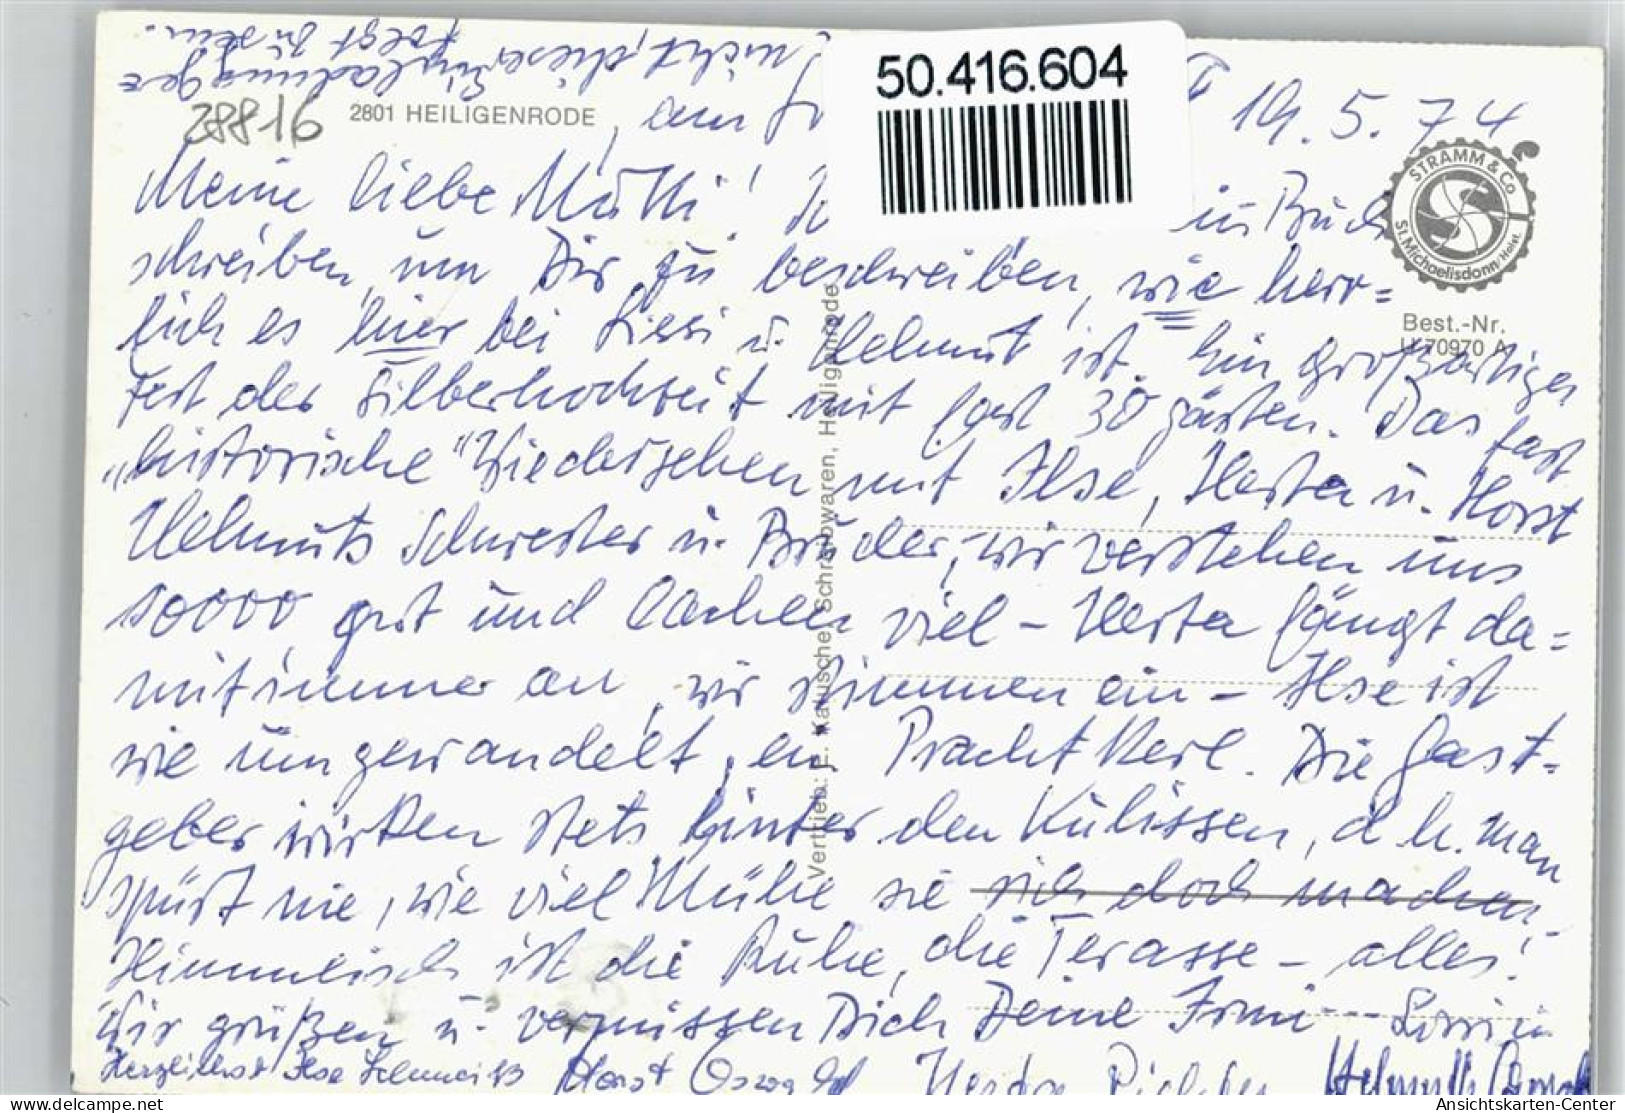 nicht, dieser Einladung ge=
folgt zu sein.
50.416.604
28816
2801 HEILIGENRODE, am
19.5.74
Meine liebe Mutti! in Buch
schreiben, um Dir zu beschreiben, wie herr=
lich es hier bei Sissi u. Helmut ist. Ein großartiges
Fest der Silberhochzeit mit fast 30 Gästen. Das fast
"historische" Wiedersehen mit Ilse, Herta u. Horst
Helmuts Schwester u. Bruder, wir verstehen uns
10000 gut und lachen viel – Herta fängt da=
mit immer an, wir stimmen ein – Ilse ist
wie umgewandelt, ein Pracht Kerl. Die Gast=
geber wirken stets hinter den Kulissen, d.h. man
spürt nie, wie viel Mühe sie sich doch machen,
Himmlisch ist die Ruhe, die Terasse – alles!
Wir grüßen u. vermissen Dich Deine Irmi
Herzlichst Ilse Horst Herta Richter Helmuth
STRAMM & Co
St.Michaelisdonn/Holst.
S
Best.-Nr.
U 70970 A
Vertrieb: F. Katuscher Schreibwaren, Heiligenrode
Ansichtskarten-Center